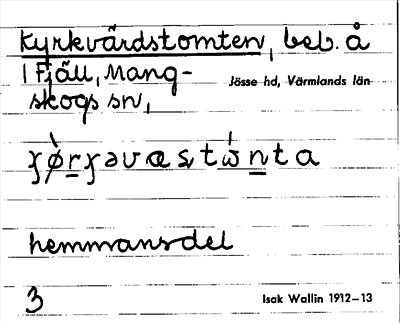 Kyrkvärdstomten, beb. å
1 Fjäll, Mang-
Jösse hd, Värmlands län
skogs sn,
hemmansdel
3
Isak Wallin 1912–13